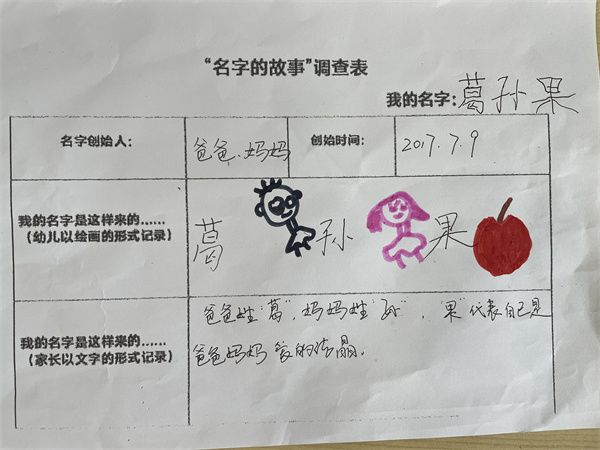 “名字的故事”调查表
我的名字：葛孙果
名字创始人： 爸爸、妈妈 创始时间： 2017.7.9
我的名字是这样来的……
（幼儿以绘画的形式记录）
葛 孙 果
我的名字是这样来的……
（家长以文字的形式记录）
爸爸姓“葛”，妈妈姓“孙”，“果”代表自己是
爸爸妈妈爱的结晶。